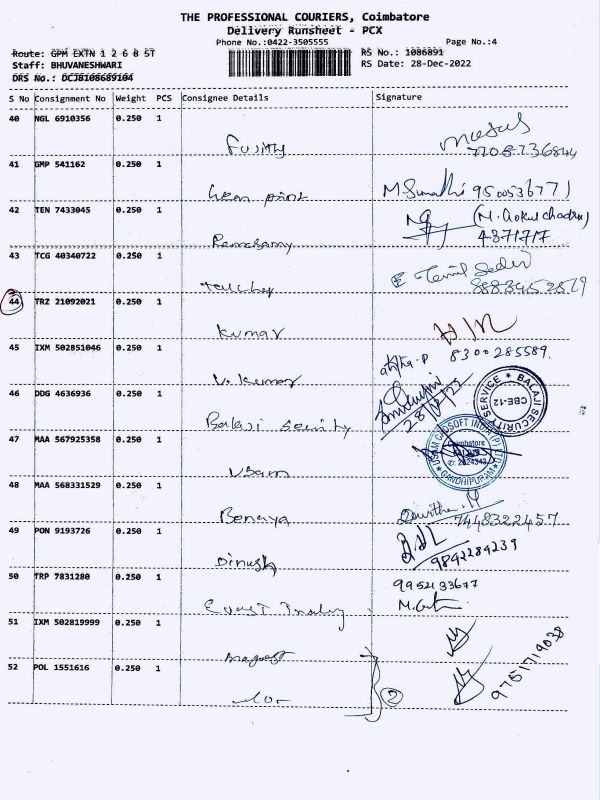 THE PROFESSIONAL COURIERS, Coimbatore
Delivery Runsheet - PCX
Phone No.:0422-3505555
Page No.:4
Route: GPM EXTN 1 2 6 8 ST
RS No.: 1086891
Staff: BHUVANESHWARI
RS Date: 28-Dec-2022
DRS No.: DCJB108689104
S No Consignment No Weight PCS Consignee Details Signature
40 NGL 6910356 0.250 1
Fujitty
41 GMP 541162 0.250 1
M Sumathi 9500536771
42 TEN 7433045 0.250 1
(M. Gokulchadru)
Ramasamy 4371717
43 TCG 40340722 0.250 1
E Tamil Selvi
44 TRZ 21092021 0.250 1
Kumar
45 IXM 502851046 0.250 1
8300285589.
V. Kumar
46 DDG 4636936 0.250 1
28/12/22
BALAJI SECURITY SERVICE CBE-12
Balaji Security
47 MAA 567925358 0.250 1
Coimbatore
GANDHIPURAM
48 MAA 568331529 0.250 1
Benaya 7448322457
49 PON 9193726 0.250 1
Dinesh 9842284239
50 TRP 7831280 0.250 1
9952133677
51 IXM 502819999 0.250 1
52 POL 1551616 0.250 1
9751719038
2